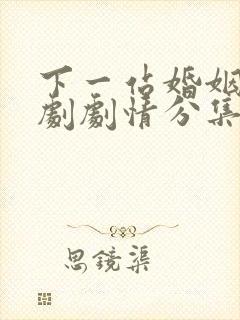 下一站婚姻
剧剧情分集
思镜渠